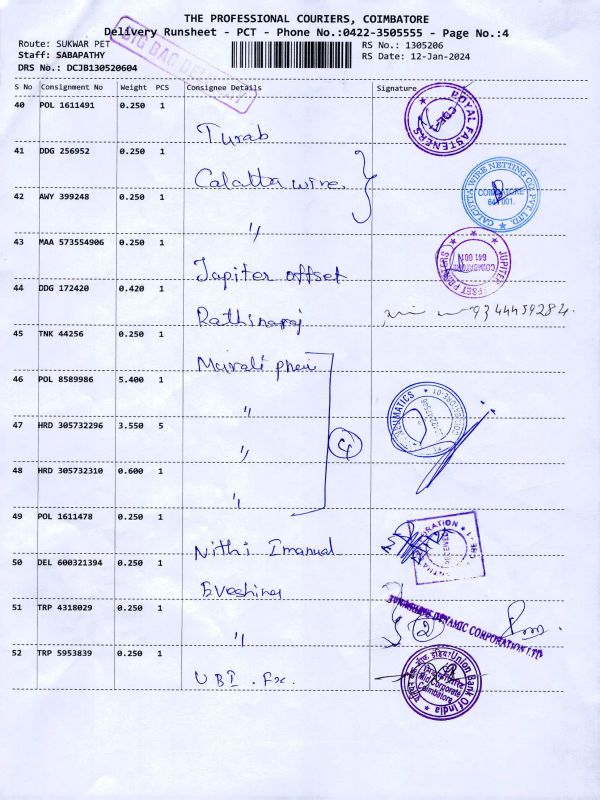 THE PROFESSIONAL COURIERS, COIMBATORE
Delivery Runsheet - PCT - Phone No.:0422-3505555 - Page No.:4
Route: SUKWAR PET
RS No.: 1305206
Staff: SABAPATHY
RS Date: 12-Jan-2024
DRS No.: DCJB130520604
BIG BAG DELIVERY
S No Consignment No Weight PCS Consignee Details Signature
40 POL 1611491 0.250 1
Turab
ROYAL FASTENERS
CBE
41 DDG 256952 0.250 1
Calcutta wire
CALCUTTA WIRE NETTING CO. PVT. LTD.
COIMBATORE
641 001.
42 AWY 399248 0.250 1
"
43 MAA 573554906 0.250 1
Jupiter offset
JUPITER OFFSET
COIMBATORE
641 001
44 DDG 172420 0.420 1
Rathinaraj
9344459284
45 TNK 44256 0.250 1
46 POL 8589986 5.400 1
"
PNEUMATICS
47 HRD 305732296 3.550 5
"
4
48 HRD 305732310 0.600 1
"
49 POL 1611478 0.250 1
Nithi Imanual
50 DEL 600321394 0.250 1
51 TRP 4318029 0.250 1
"
2
DYNAMIC CORPORATION LTD
52 TRP 5953839 0.250 1
UBI . Fx.
Union Bank Of India
Mid Corporate
Coimbatore